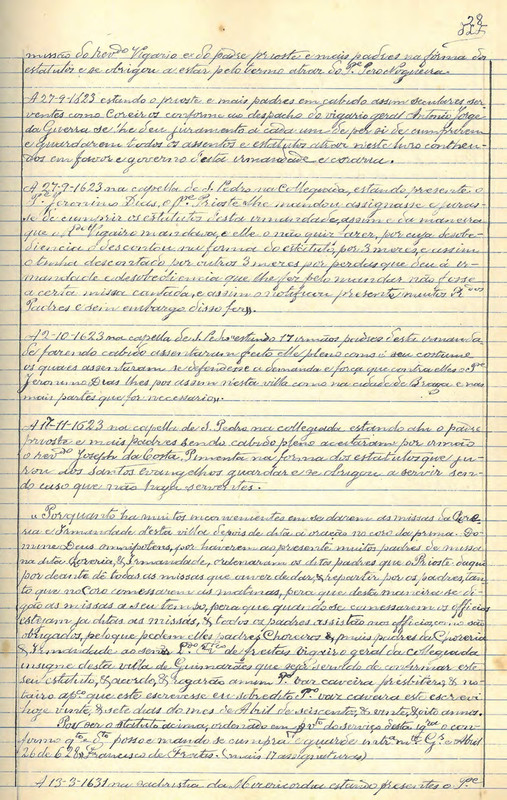 28
missão do rev.do Vigario e do padre prioste e mais padres na fórma dos
estatutos e se obrigou a estar pelo termo atraz do P.e Pero Nogueira.
A 27-9-1623 estando o prioste e mais padres em cabido assim seculares ser-
ventes como Coreiros conforme ao despacho do vigario geral Antonio Jorge
da Guerra se lhe deu juramento a cada um de per si de cumprirem
e guardarem todos os assentos e estatutos atraz neste livro conthen-
dos em favor e governo d'esta irmandade e coraria.
A 27-9-1623 na capella de S. Pedro na Collegiada, estando presente o
P.e Jeronimo Dias, o P.e Prioste lhe mandou assignasse e juras-
se de cumprir os estatutos desta irmandade, assim e da maneira
que o Vigairo mandava, e elle o não quiz fazer, por cuja desobe-
diencia o descontou na forma do estatuto, por 3 mezes, e assim
o tinha descontado por outros 3 mezes por perdas que deu á ir-
mandade e desobediencia que lhe foi pelo mandar não fosse
a certa missa cantada, e assim o notificou presente muitos R.dos
Padres e sem embargo disso
A 2-10-1623 na capella de S. Pedro estando 17 irmãos padres d'esta irmanda-
de fazendo cabido assentaram feito elle pleno como é seu costume
os quaes assentaram se defendesse a demanda e força que contra elles o P.e
Jeronimo Dias lhes pos assim n'esta villa como na cidade de Braga e nas
mais partes que for necessario.
A 17-11-1623 na capella de S. Pedro na collegiada estando ahi o padre
prioste e mais padres sendo cabido pleno aceitaram por irmão
o rev.do Joseph da Costa Pimenta na fórma dos estatutos que ju-
rou aos santos evangelhos guardar e se obrigou a servir sen-
do caso que não haja serventes.
"Porquanto ha muitos inconvenientes em se darem as missas da Core-
ria e Irmandade desta villa depois de dita a oração no coro da prima. Do-
mine Deus omnipotens, por haverem ao presente muitos padres de missa
na dita Coreria, & Irmandade, ordenaram os ditos padres que o Prioste daqui
por deante dê todas as missas que ouver de dar, & repartir, por os padres, tan-
to que no Coro comessarem as matinas, pera que desta maneira se di-
gão as missas a seu tempo, pera que quando se comessarem os officios
estejam ja ditas as missas, & todos os padres assistão nos officios, como são
obrigados, pelo que pedem elles padres Choreiros & mais padres da Choreria
& Irmandade ao senõr de freitas Vigairo geral da Collegiada
insigne desta villa de Guimarães que seja servido de confirmar este
seu estatuto, & acordo, & rogarão a mim vaz caveira presbitero, & no-
tairo ap.co que este escrevesse e eu sobredito vaz caveira este escrevi
hoje vinte, & sete dias do mes de Abril de seiscentos, & vinte, & oito annos.
Por ser o statuto acima, ordenado em do serviço desta o con-
firmo posso e mando se cumpra e guarde Abril
26 de 628. Francisco de Freitas. (mais 17 assignaturas)
A 13-3-1631 na sachristia da Mizericordia estando presentes o P.e